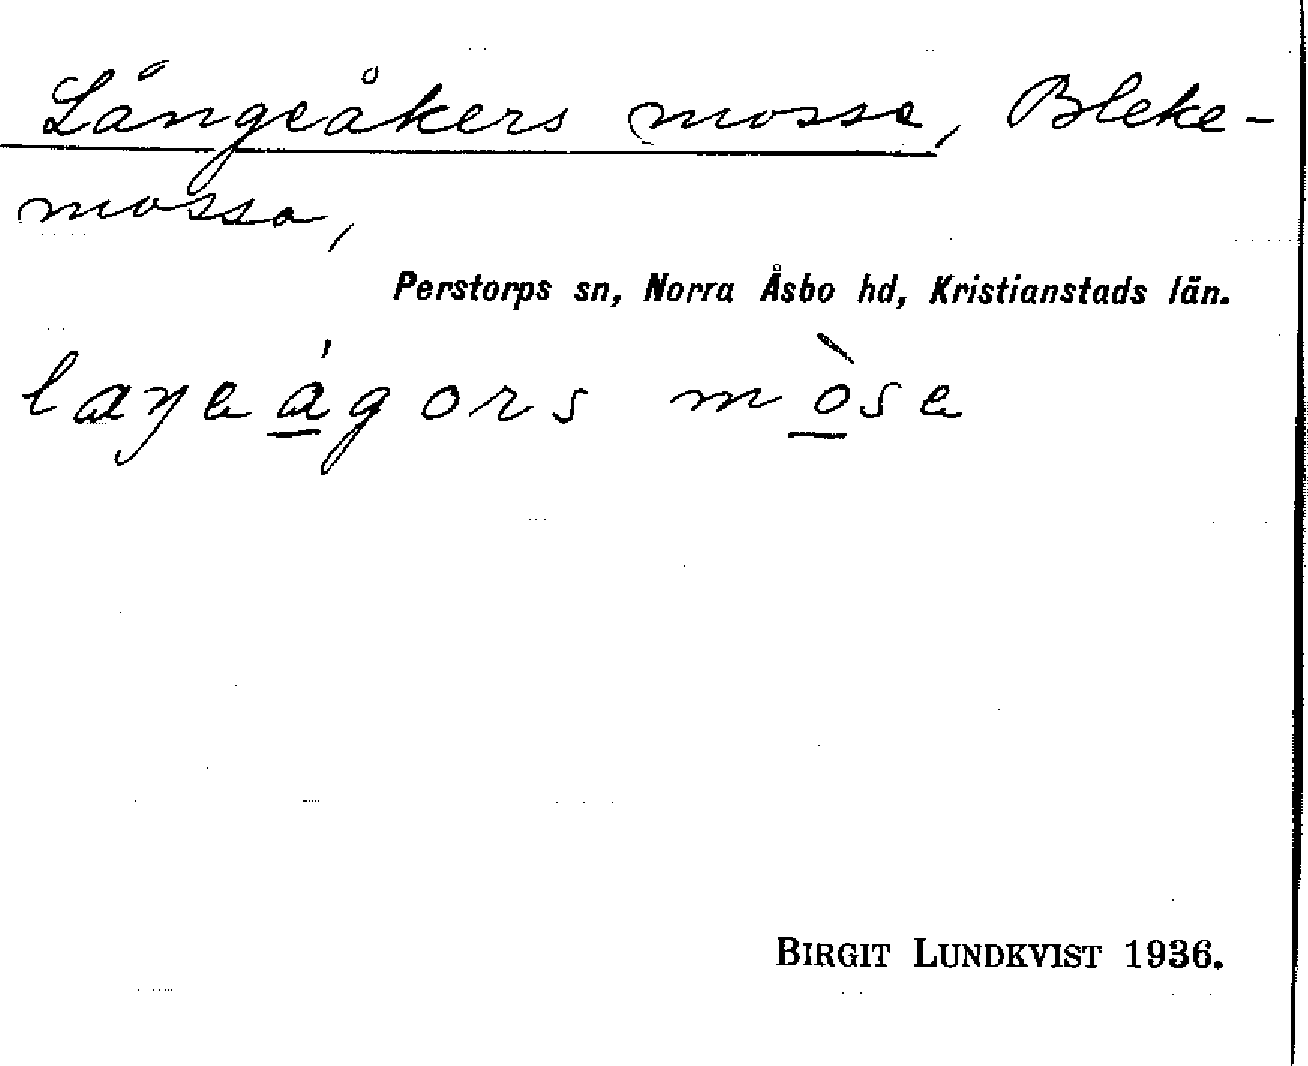 Långeåkers mosse, Bleke-
mossa,
Perstorps sn, Norra Åsbo hd, Kristianstads län.
laŋeágors mòse
BIRGIT LUNDKVIST 1936.